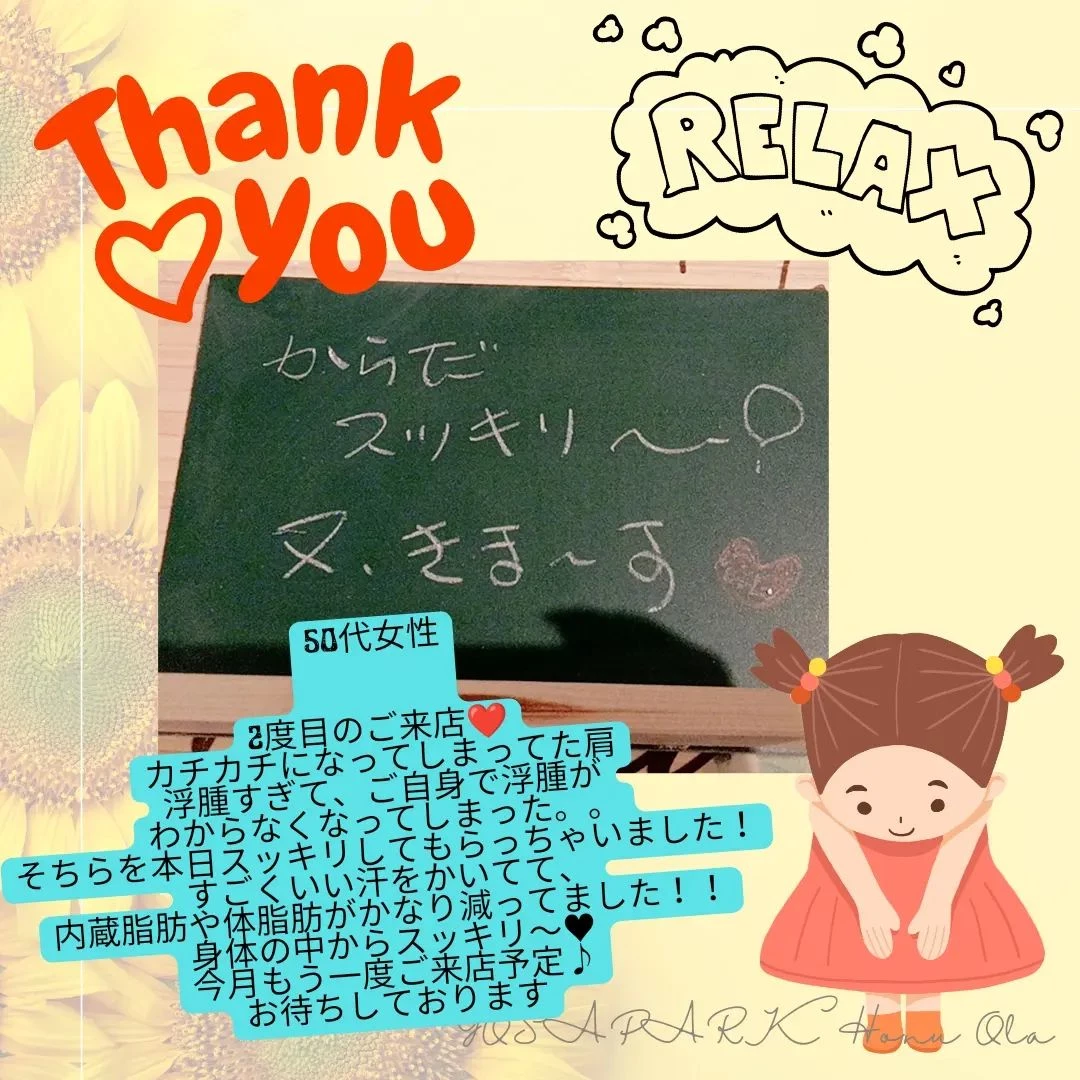 Thank
you
RELAX
からだ
スッキリ〜!
又、きま〜す
50代女性
2度目のご来店❤️
カチカチになってしまってた肩
浮腫すぎて、ご自身で浮腫が
わからなくなってしまった。。
そちらを本日スッキリしてもらっちゃいました！
すごくいい汗をかいてて、
内蔵脂肪や体脂肪がかなり減ってました！！
身体の中からスッキリ〜♥
今月もう一度ご来店予定♪
お待ちしております
YOSAPARK Honu Ola